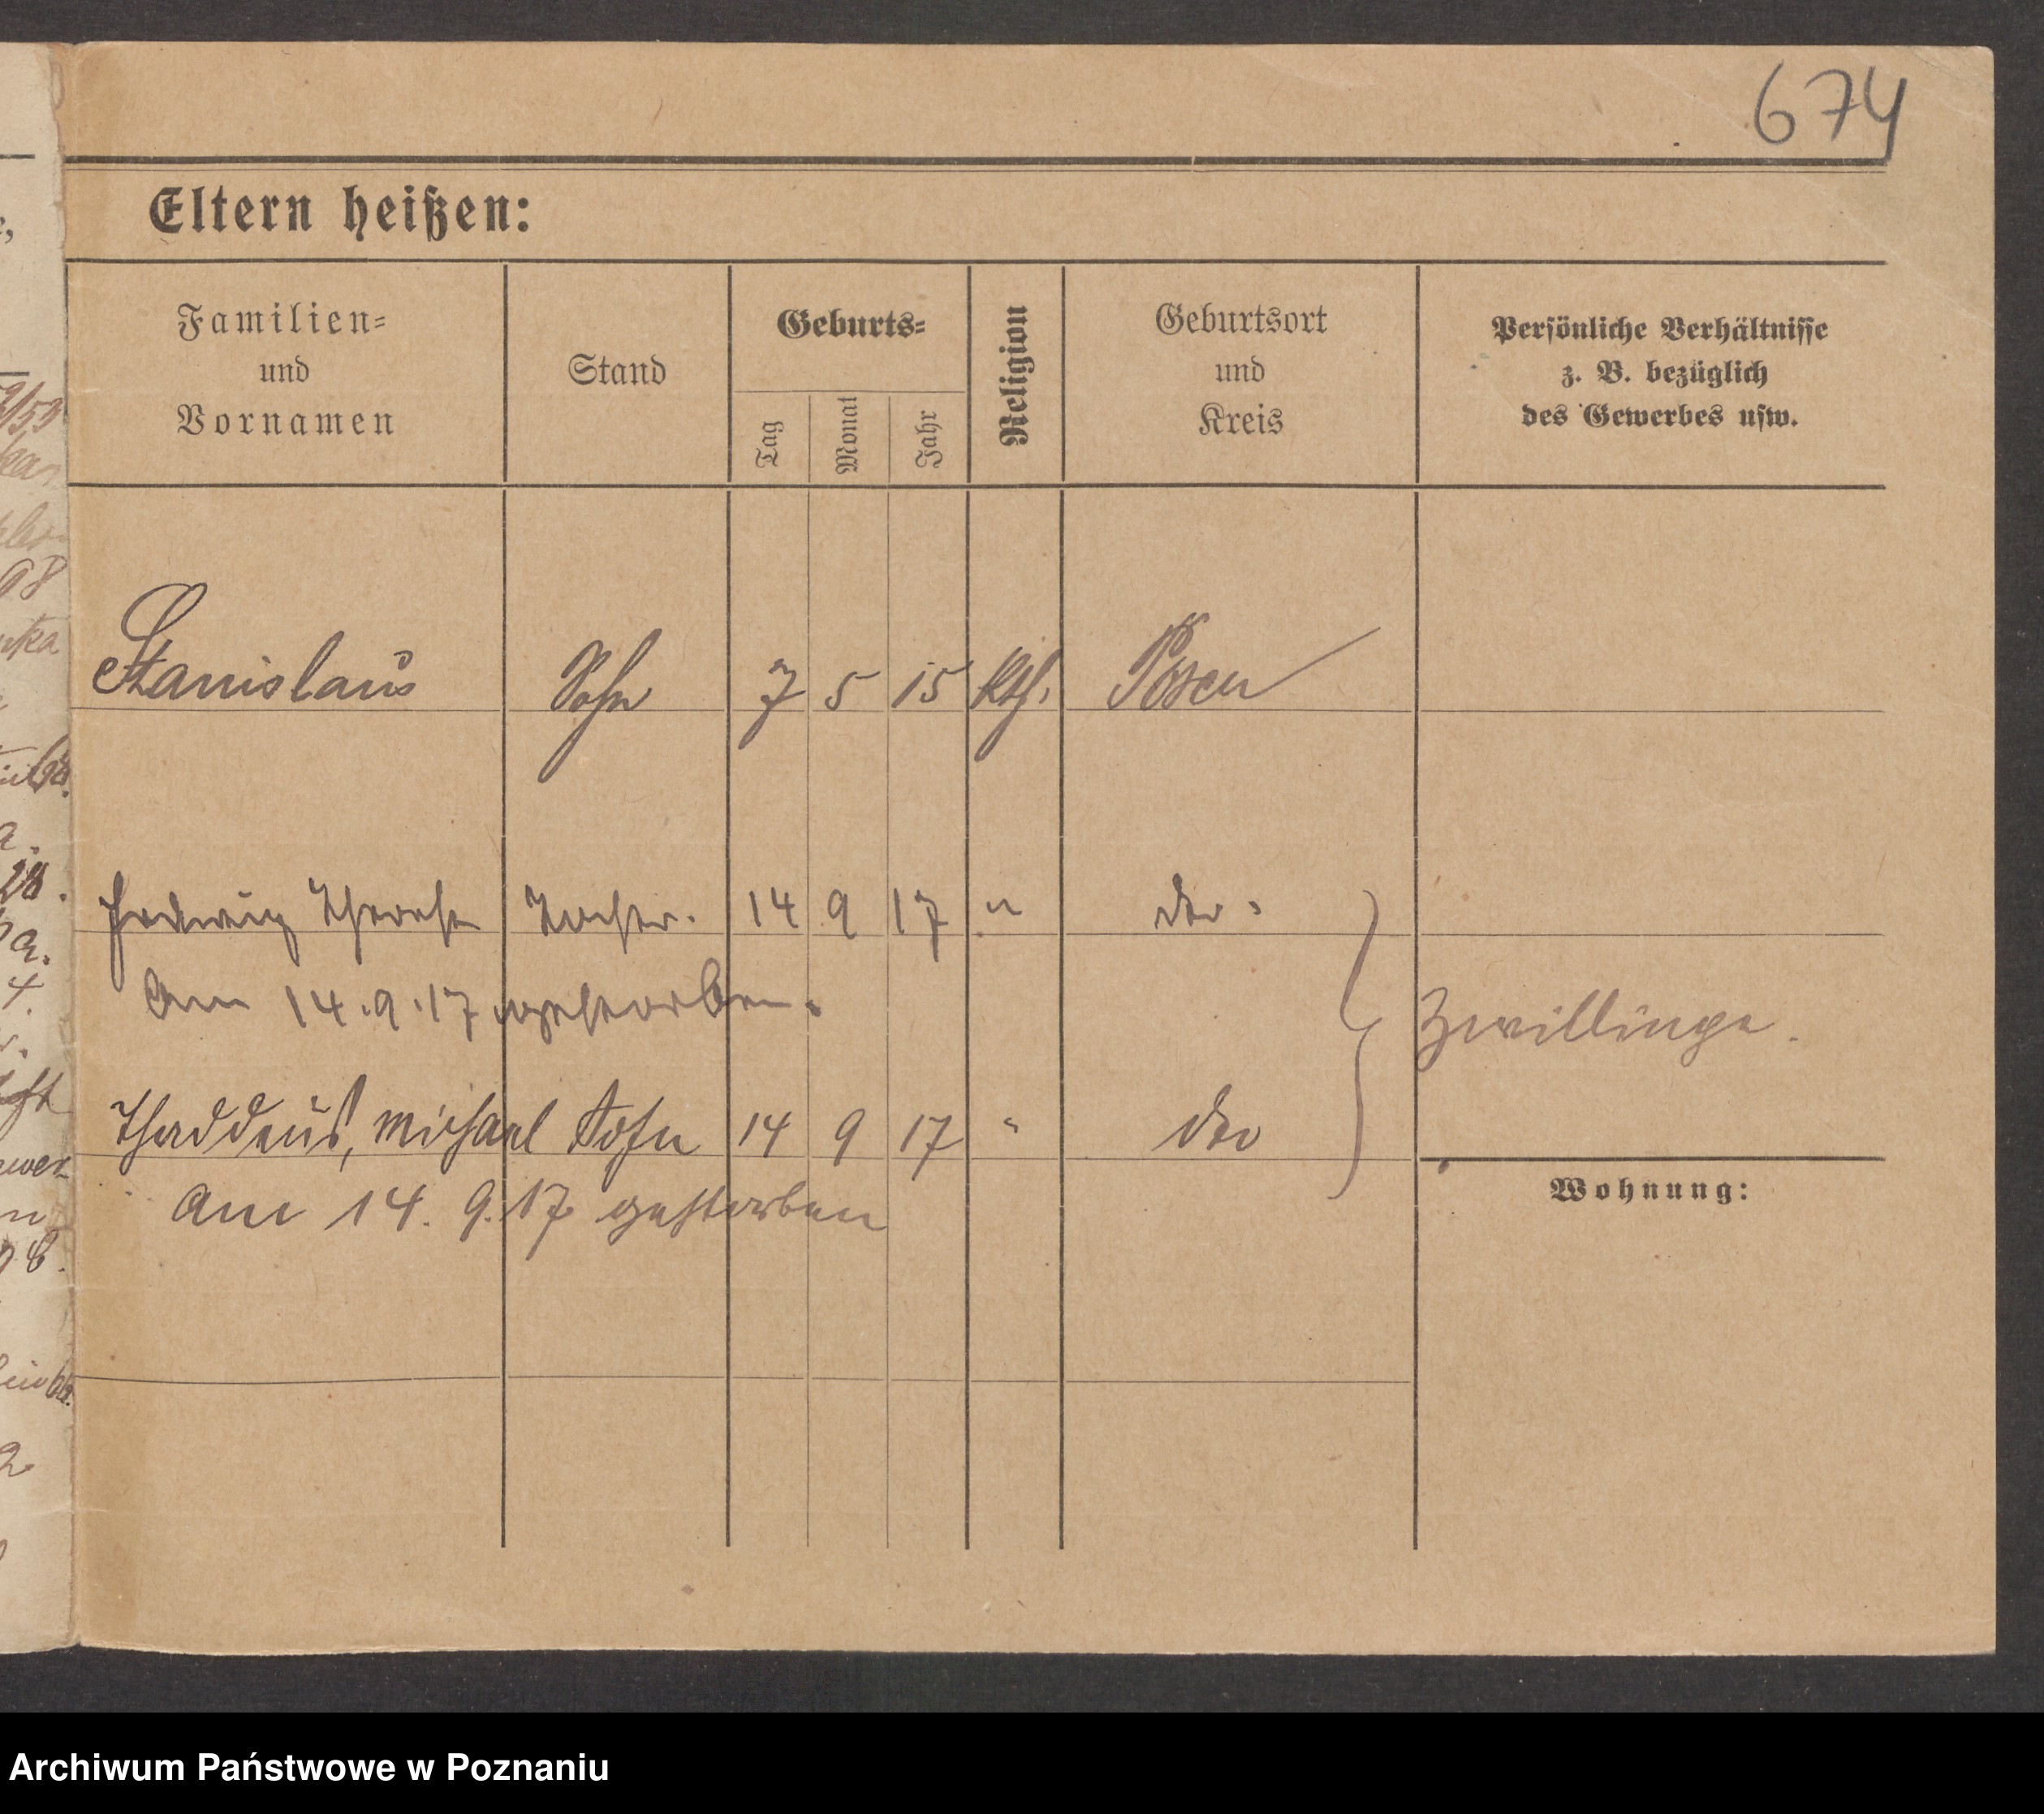 674
Eltern heißen:
Familien=
und
Vornamen
Stand
Geburts=
Tag
Monat
Jahr
Religion
Geburtsort
und
Kreis
Persönliche Verhältnisse
z. B. bezüglich
des Gewerbes usw.
Stanislaus Sohn 7 5 15 kth. Posen
Hedwig Therese Tochter. 14 9 17 " do.
Am 14.9.17 gestorben.
Zwillinge.
Thaddäus, Michael Sohn 14 9 17 " do
Wohnung:
Am 14. 9. 17 gestorben
Archiwum Państwowe w Poznaniu